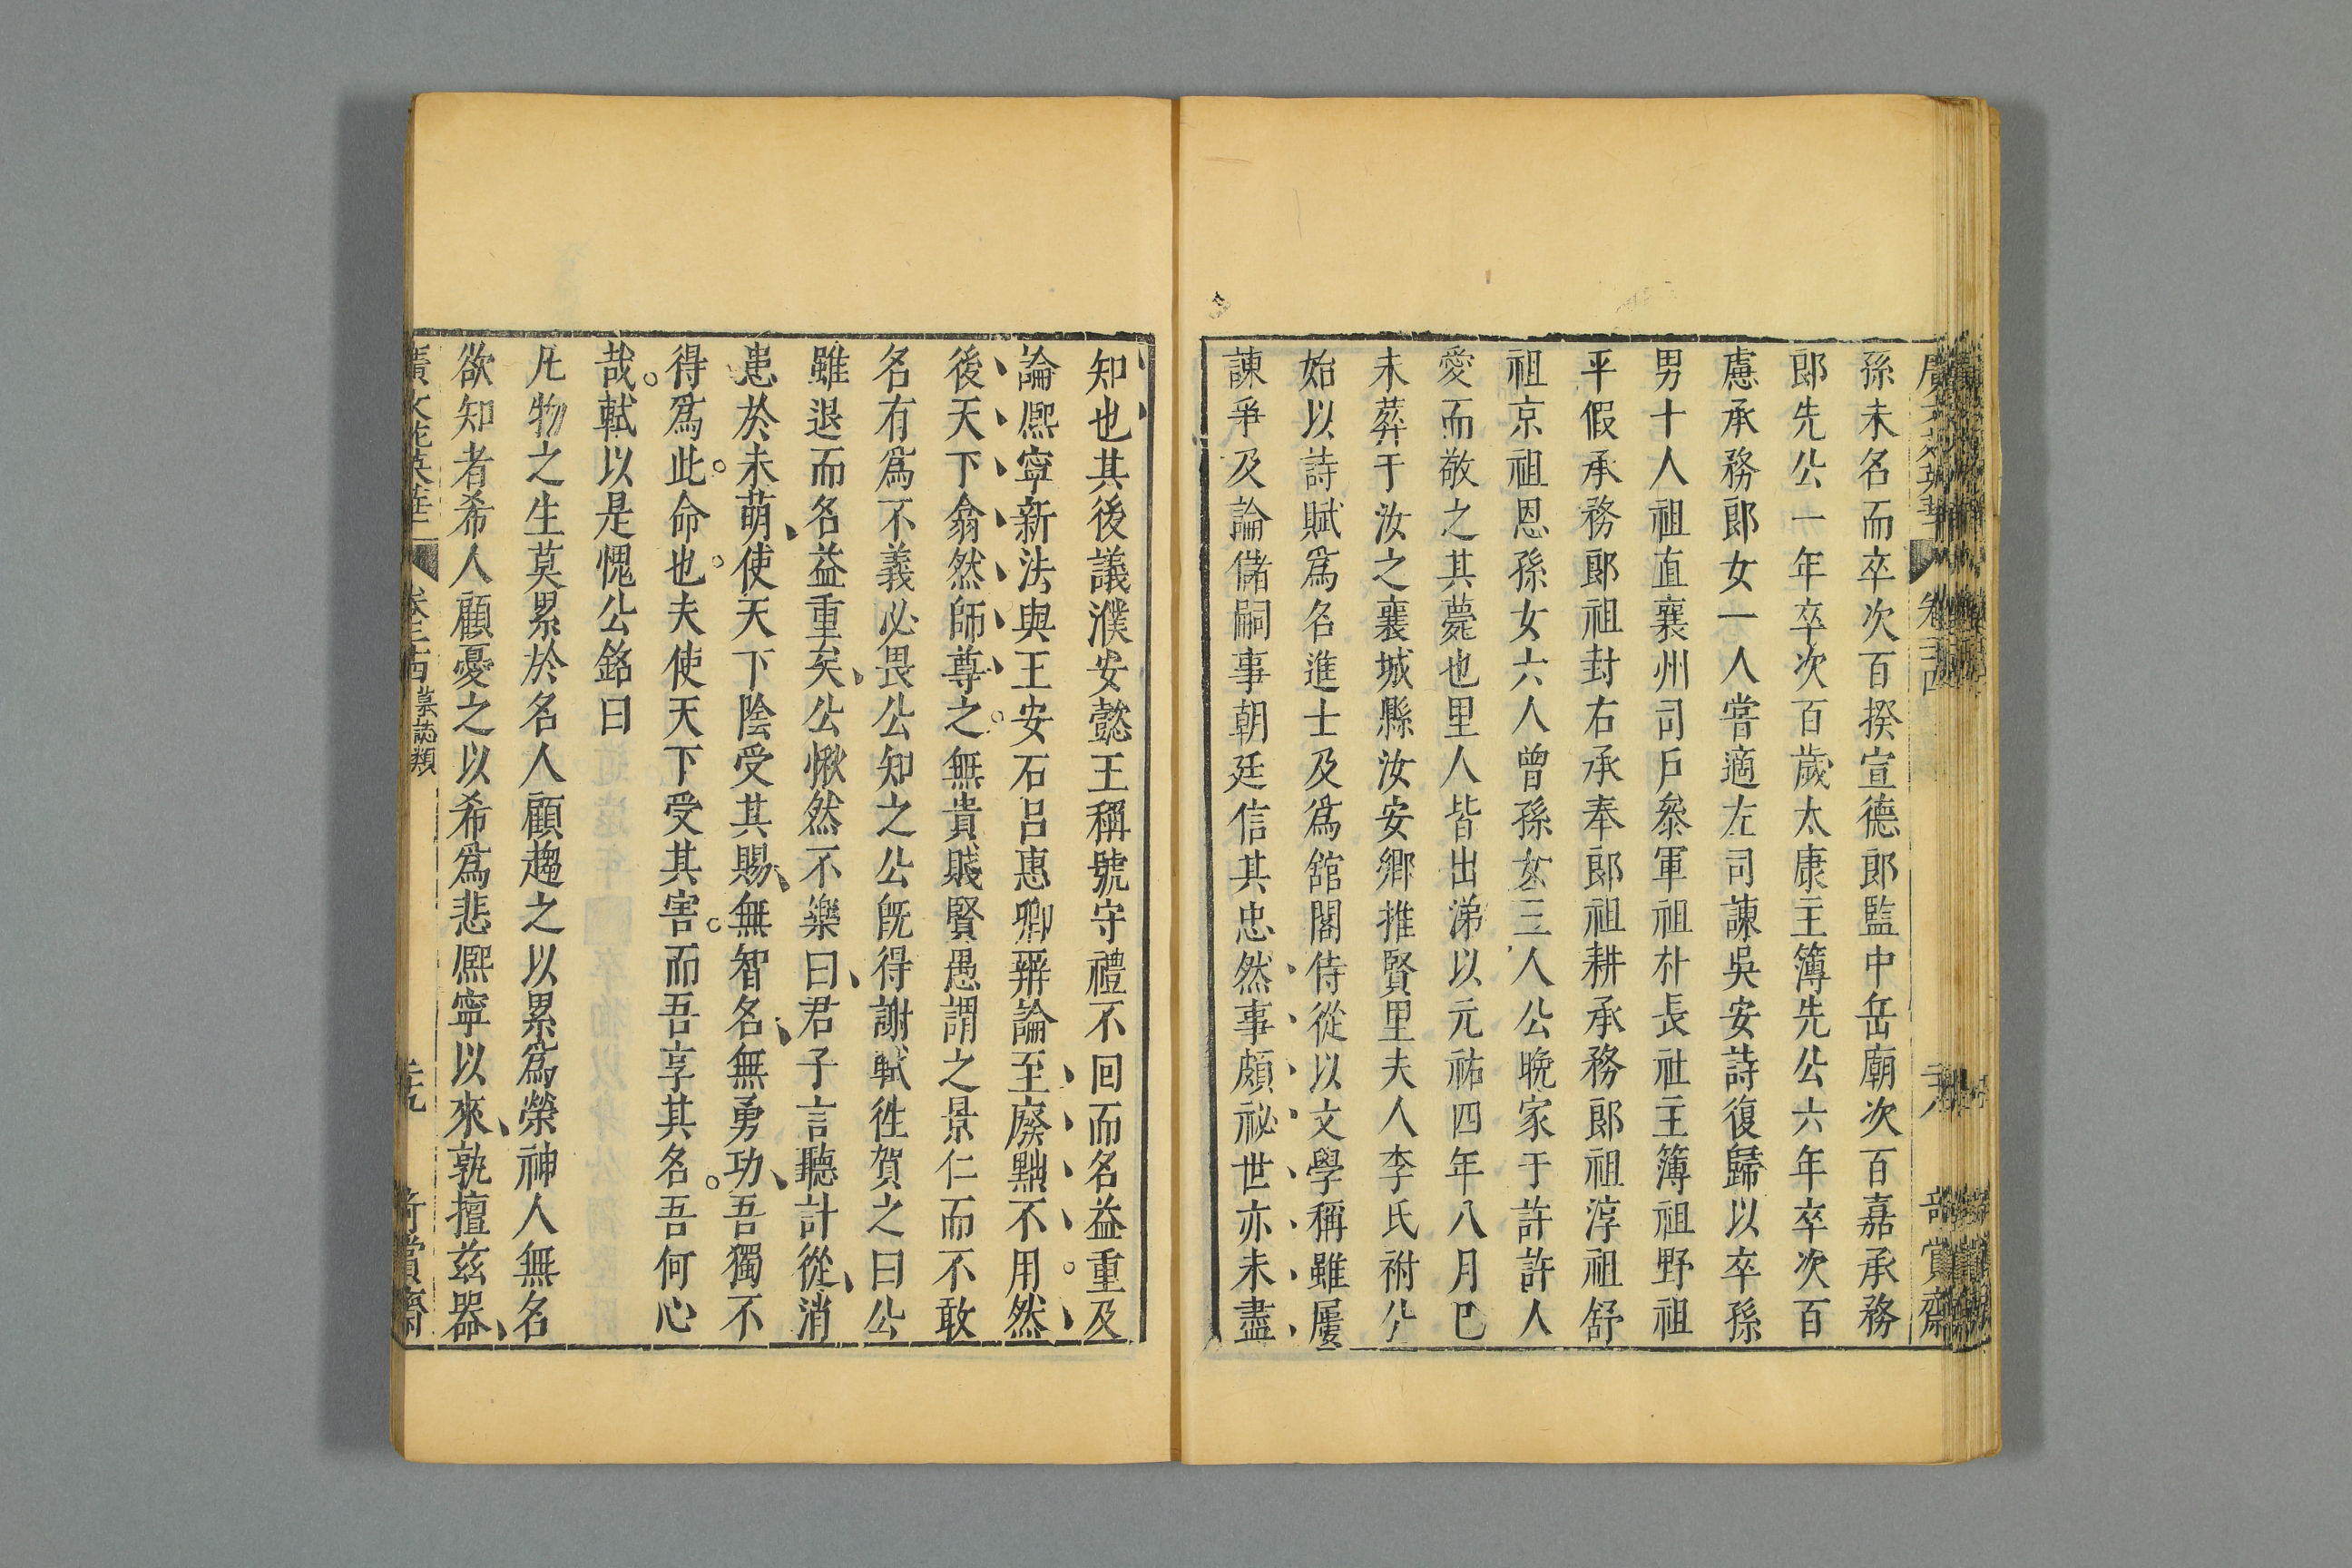 孫未名而卒次百揆宣德郎監中岳廟次百嘉承務
郎先公一年卒次百歲太康主簿先公六年卒次百
慮承務郎女一人嘗適左司諫吳安詩復歸以卒孫
男十人祖直襄州司戶參軍祖朴長社主簿祖野祖
平假承務郎祖封右承奉郎祖耕承務郎祖淳祖舒
祖京祖恩孫女六人曾孫女三人公晚家于許許人
愛而敬之其薨也里人皆出涕以元祐四年八月巳
未葬于汝之襄城縣汝安鄉推賢里夫人李氏祔公
始以詩賦爲名進士及爲舘閣侍從以文學稱雖屢
諫爭及論儲嗣事朝廷信其忠然事頗祕世亦未盡
知也其後議濮安懿王稱號守禮不回而名益重及
論熈寧新法與王安石呂惠卿辨論至廢黜不用然
後天下翕然師尊之無貴賤賢愚謂之景仁而不敢
名有爲不義必畏公知之公旣得謝軾徃賀之曰公
雖退而名益重矣公愀然不樂曰君子言聽計從消
患於未萌使天下陰受其賜無智名無勇功吾獨不
得爲此命也夫使天下受其害而吾享其名吾何心
哉軾以是愧公銘曰
凡物之生莫累於名人顧趨之以累爲榮神人無名
欲知者希人顧憂之以希爲悲熈寧以來孰擅茲器